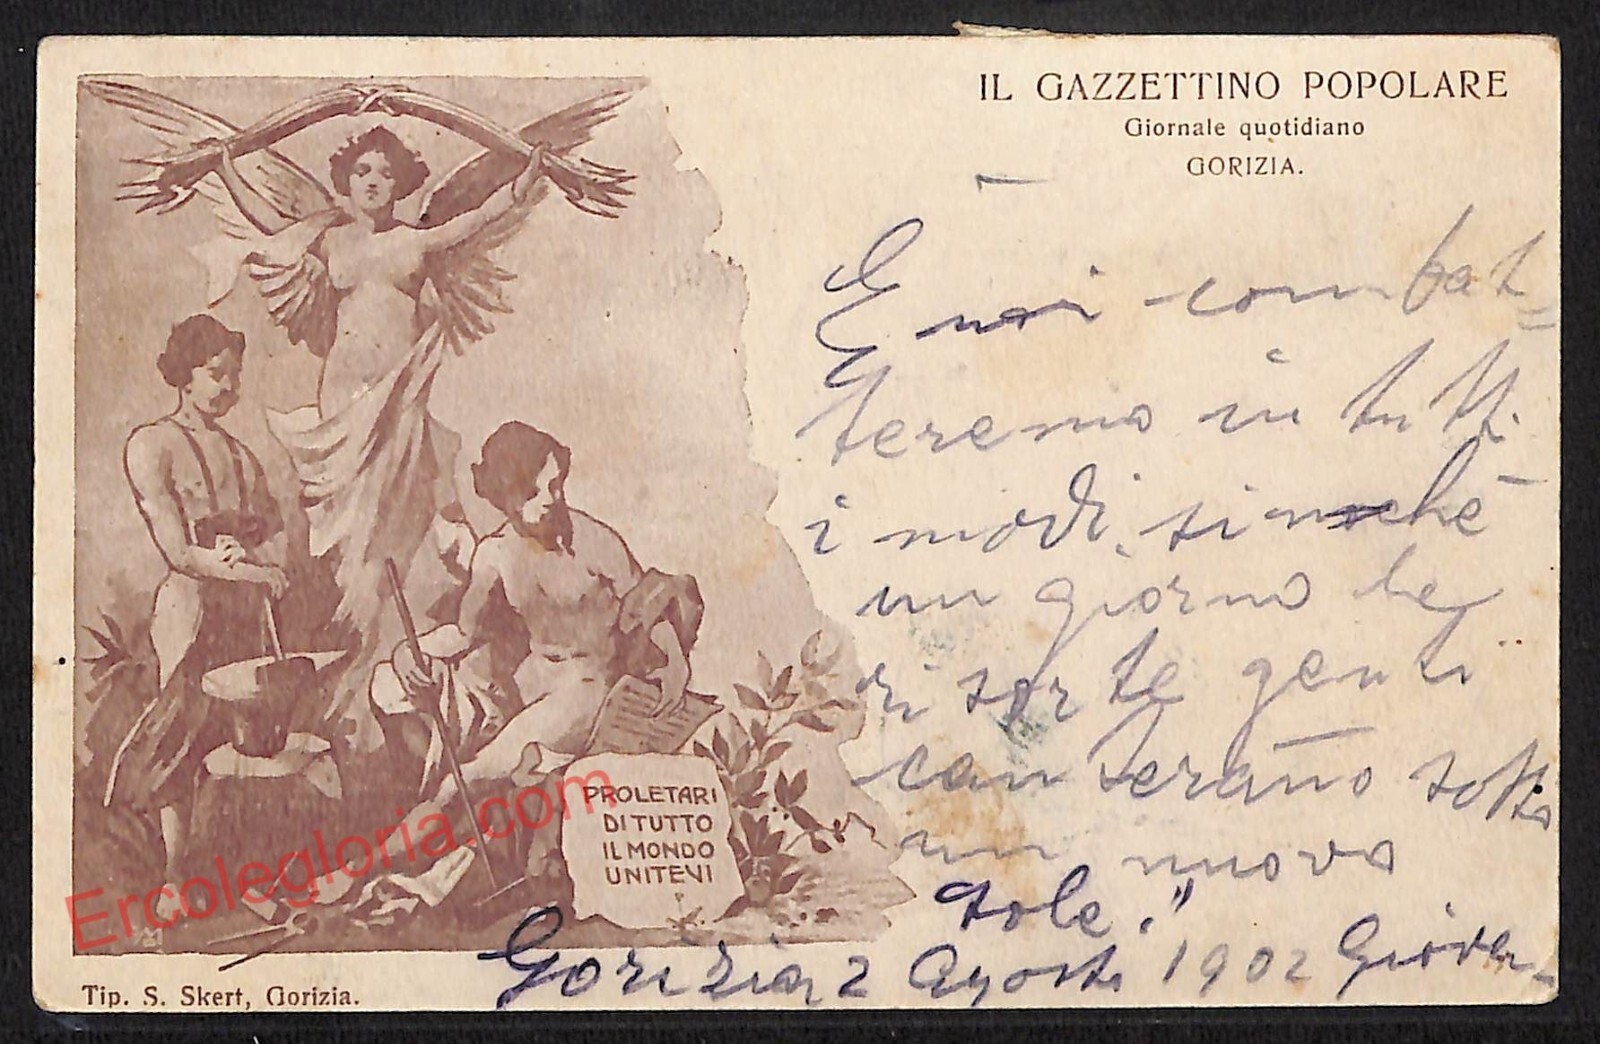 IL GAZZETTINO POPOLARE
Giornale quotidiano
GORIZIA.
E noi combat=
teremo in tutti
i modi, sinchè
un giorno le
risorte genti
canterano sotto
un nuovo
sole."
Gorizia, 2 Agosto 1902 Giovan-
PROLETARI
DI TUTTO
IL MONDO
UNITEVI
Tip. S. Skert, Gorizia.
Ercolegloria.com